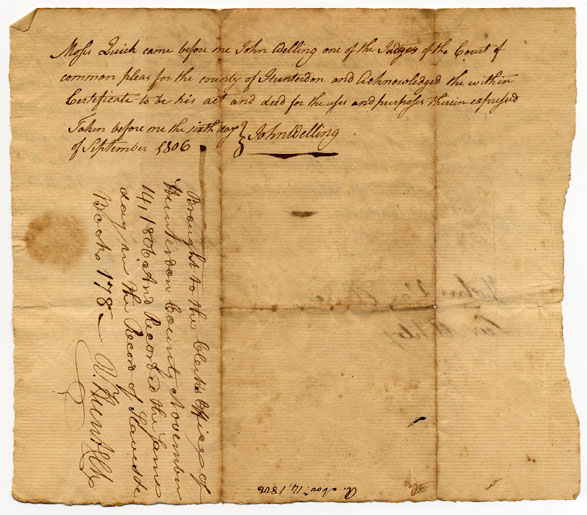 Moses Quick came before me John Welling one of the Judges of the Court of
common pleas for the county of Hunterdon and Acknowledged the within
Certificate to be his act and deed for the uses and purposes therein expressed
Taken before me the sixth day } John Welling
of September 1806
Brought to the Clerks Office of
Hunterdon County November
14, 1806 And Recorded the same
day in the Record of
Book 178
Hunt Clk
Novr. 14, 1806